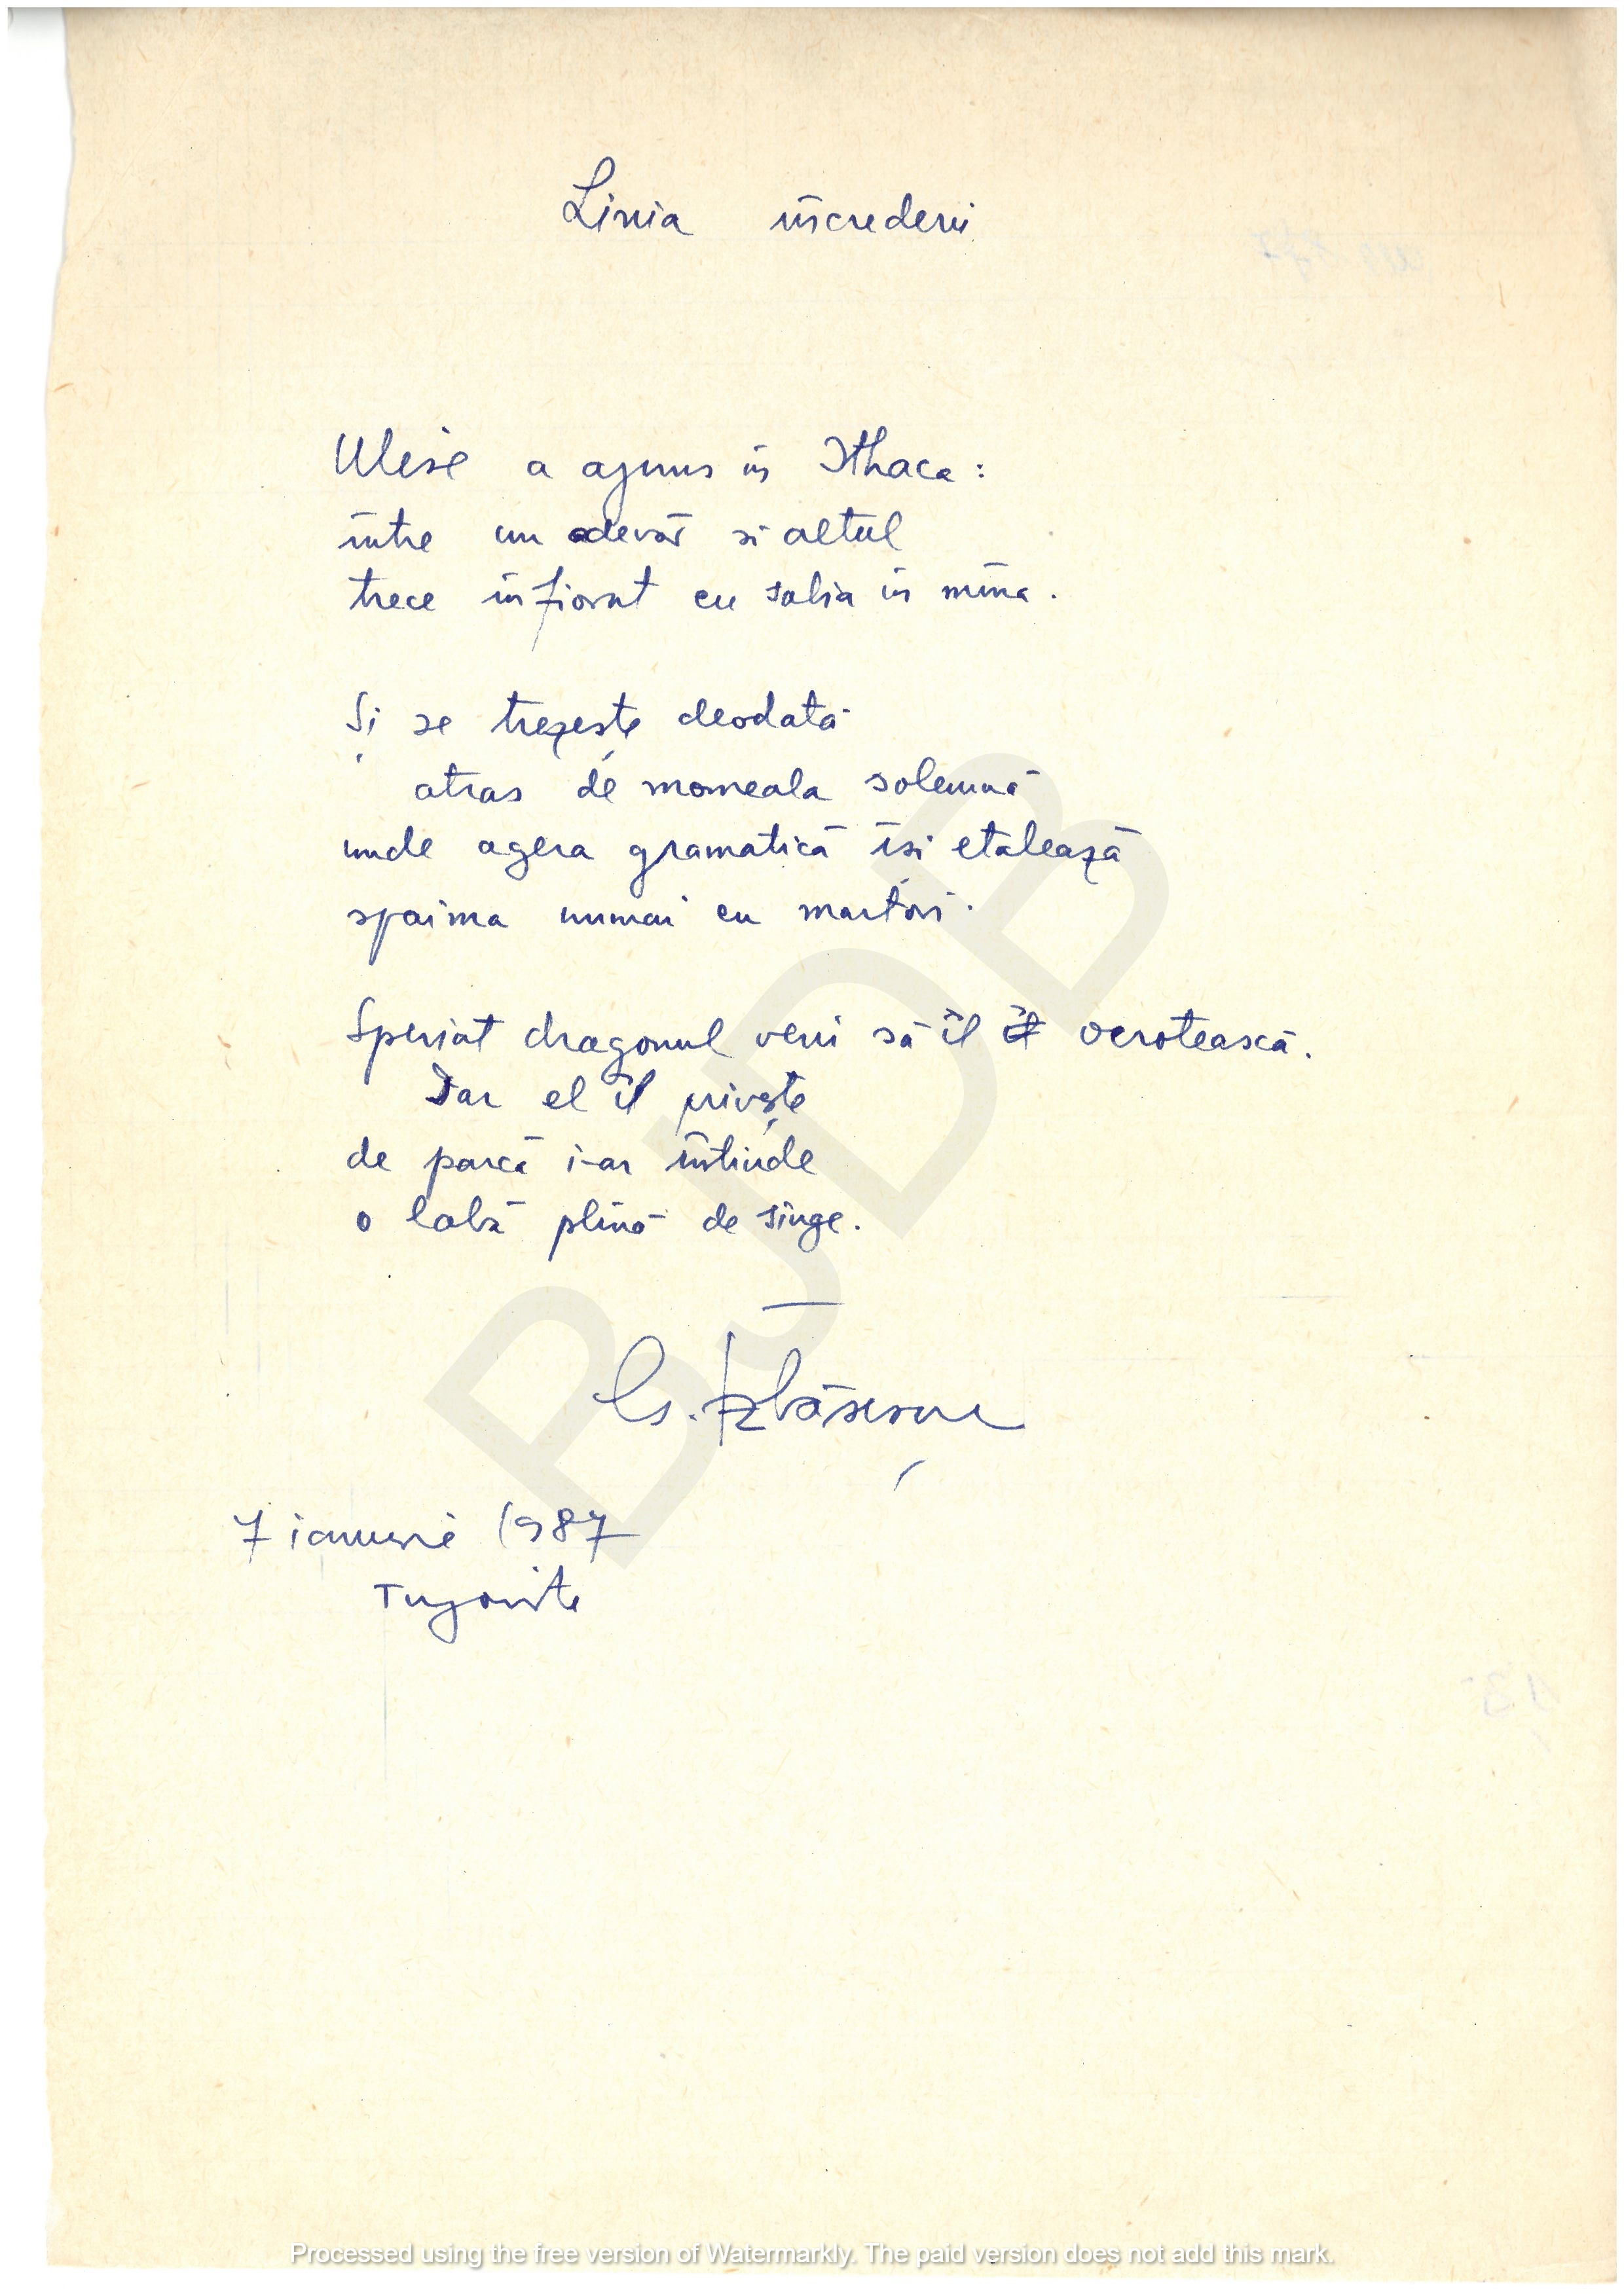 Linia increderii
Ulise a ajuns în Ithaca:
între un adevăr și altul
trece înfiorat cu sabia în mîna.
Și se trezește deodată
atras de momeala solemnă
unde agera gramatică își etalează
spaima numai cu martori.
Speriat dragonul veni să îl ocrotească.
Dar el îl privește
de parcă i-ar întinde
o labă plină de sînge.
Gh. Izbășescu
7 ianuarie 1987
BJDB
Processed using the free version of Watermarkly. The paid version does not add this mark.